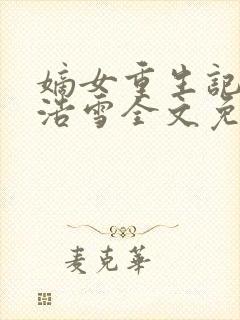 嫡女重生記
浩雪全文免
麦克華